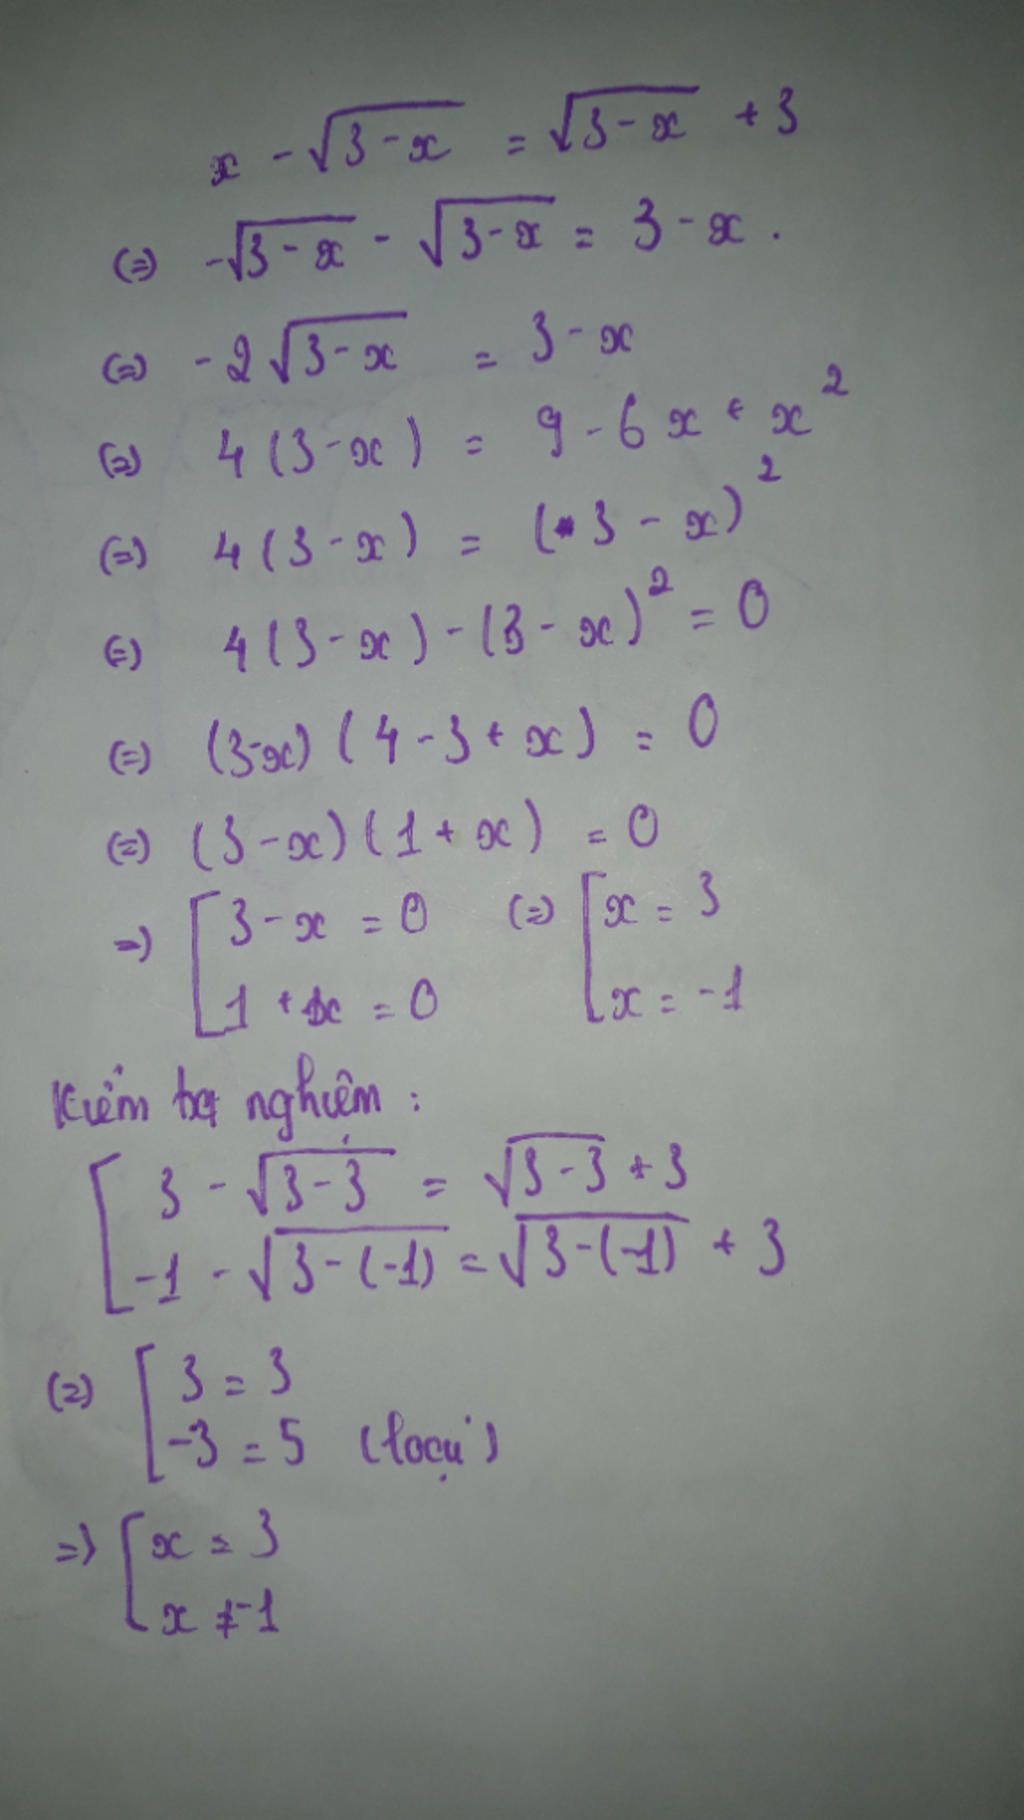 x - √(3-x) = √(3-x) + 3
(=) -√(3-x) - √(3-x) = 3-x.
(=) -2√(3-x) = 3-x
(=) 4(3-x) = 9-6x+x²
(=) 4(3-x) = (3-x)²
(=) 4(3-x) - (3-x)² = 0
(=) (3-x)(4-3+x) = 0
(=) (3-x)(1+x) = 0
=) [ 3-x = 0 (=) [ x = 3
1+x = 0 x = -1
Kiểm tra nghiệm :
[ 3 - √(3-3) = √(3-3) + 3
-1 - √(3-(-1)) = √(3-(-1)) + 3
(=) [ 3 = 3
-3 = 5 (loại)
=) [ x = 3
x ≠ -1